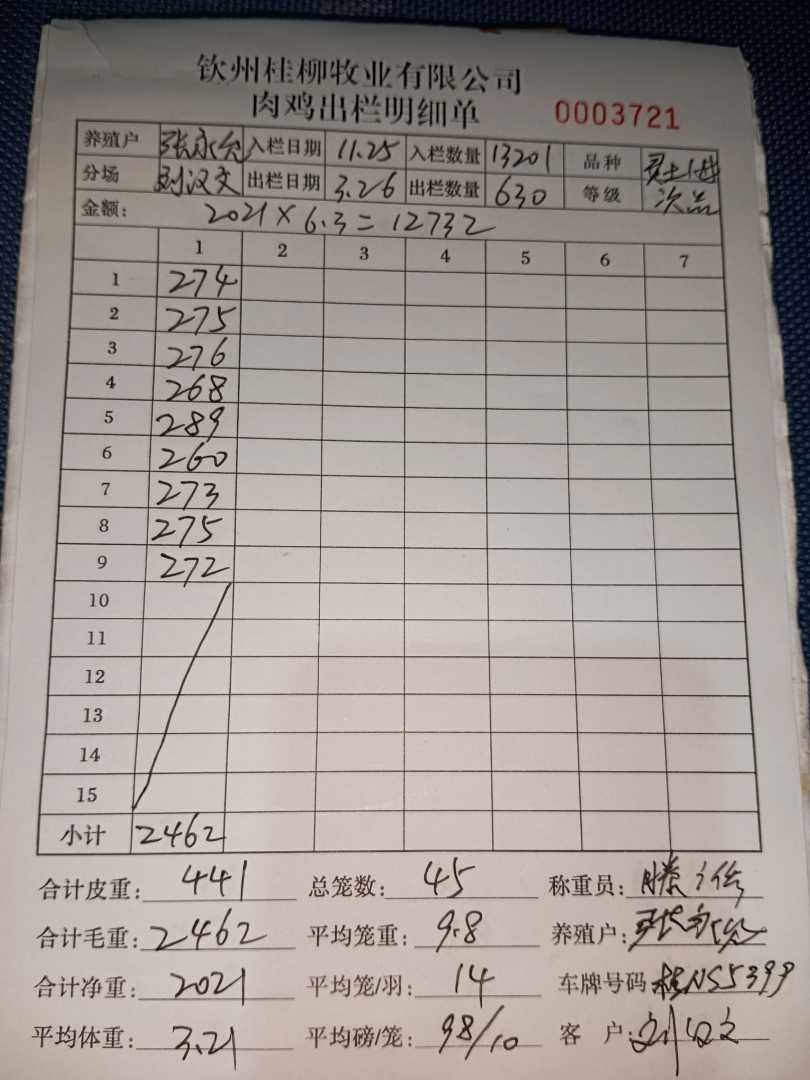 钦州桂柳牧业有限公司
肉鸡出栏明细单 0003721
养殖户 张永 入栏日期 11.25 入栏数量 13201 品种
分场 刘汉文 出栏日期 3.26 出栏数量 630 等级 次品
金额: 2021×6.3=12732
1 2 3 4 5 6 7
1 274
2 275
3 276
4 268
5 289
6 260
7 273
8 275
9 272
10
11
12
13
14
15
小计 2462
合计皮重: 441 总笼数: 45 称重员: 滕
合计毛重: 2462 平均笼重: 9.8 养殖户: 张
合计净重: 2021 平均笼/羽: 14 车牌号码: 桂NS5399
平均体重: 3.21 平均磅/笼: 98/10 客户: 刘汉文